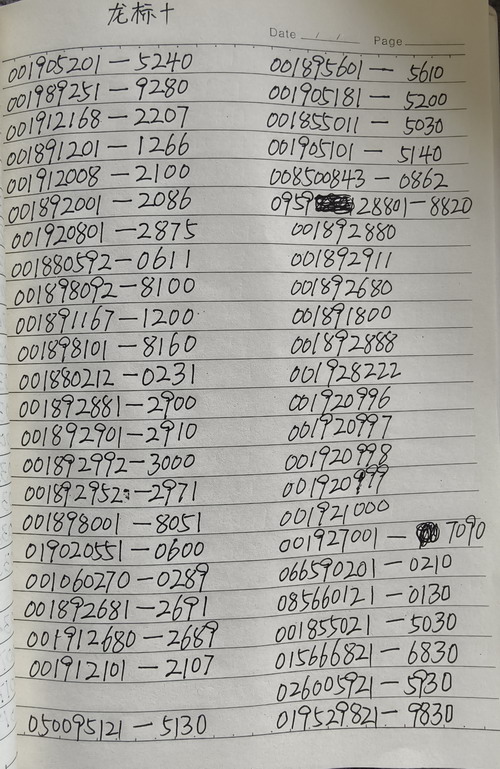 龙标十
Date / / Page
001905201－5240
001989251－9280
001912168－2207
001891201－1266
001912008－2100
001892001－2086
001920801－2875
001880592－0611
001898092－8100
001891167－1200
001898101－8160
001880212－0231
001892881－2900
001892901－2910
001892992－3000
001892952－2971
001898001－8051
019020551－0600
001060270－0289
001892681－2691
001912680－2689
001912101－2107
050095121－5130
001895601－5610
001905181－5200
001855011－5030
001905101－5140
008500843－0862
0959 28801－8820
001892880
001892911
001892680
001891800
001892888
001928222
001920996
001920997
001920998
001920999
001921000
001927001－7090
066590201－0210
085660121－0130
001855021－5030
015666821－6830
026005921－5930
019529821－9830